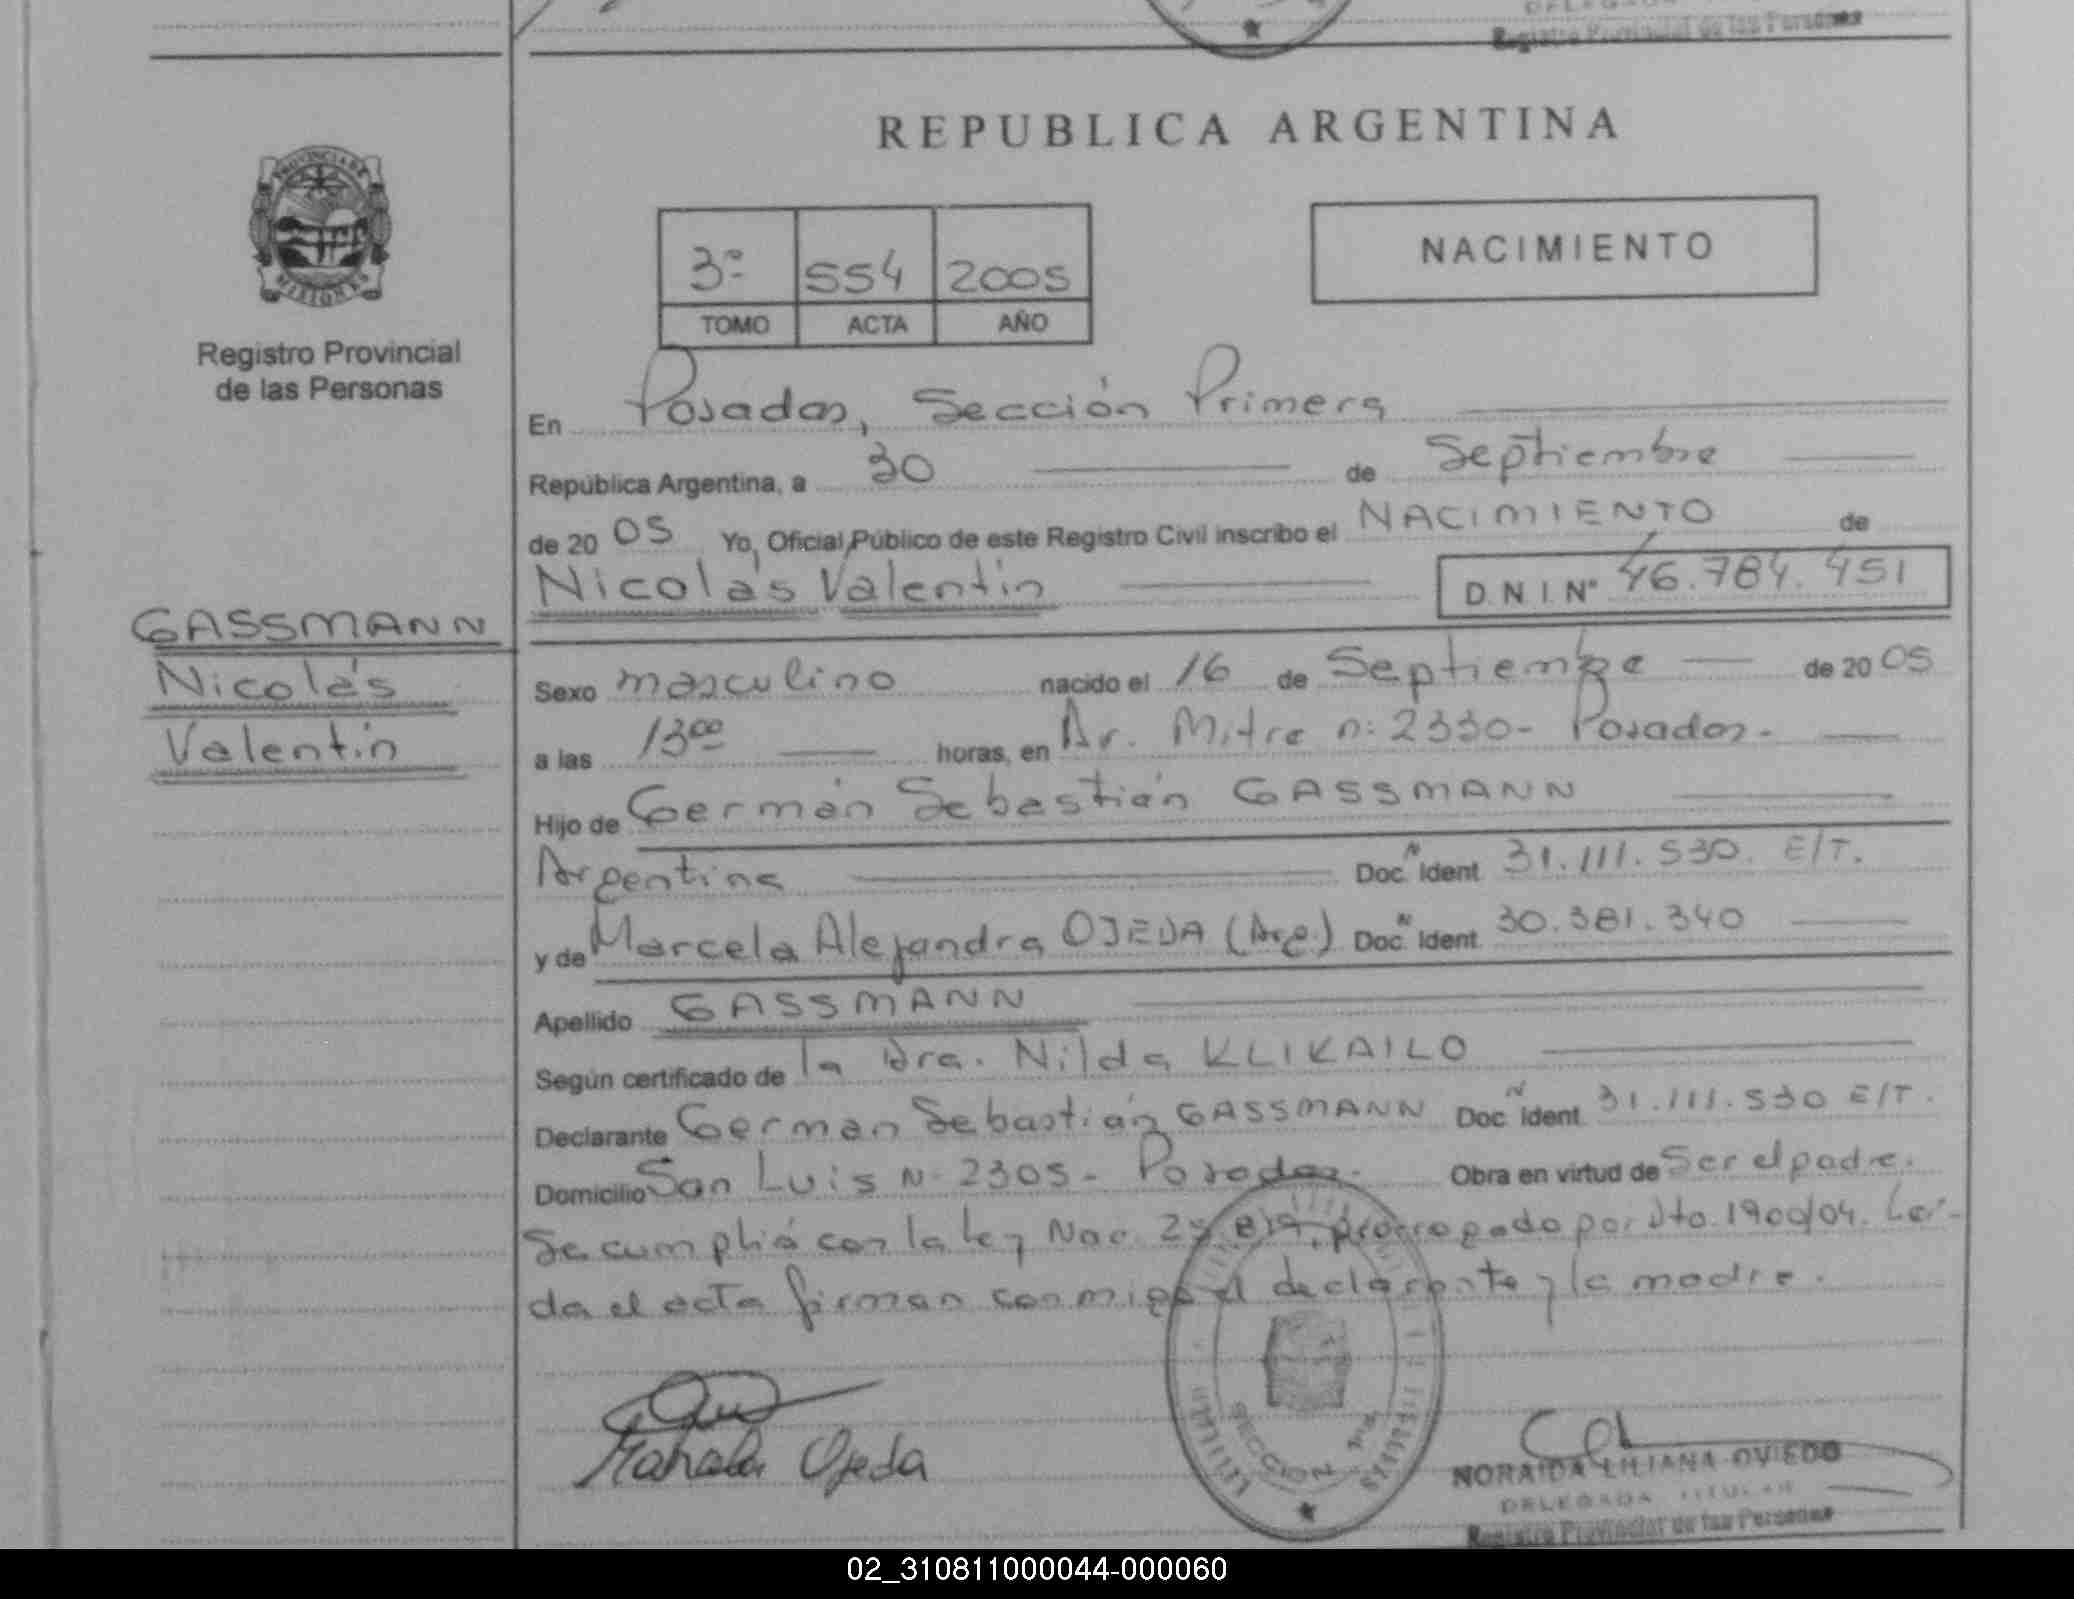 Registro Provincial de las Personas
REPUBLICA ARGENTINA
PROVINCIA DE
MISIONES
Registro Provincial
de las Personas
3º 554 2005
TOMO ACTA AÑO
NACIMIENTO
En Posadas, Sección Primera
República Argentina, a 30 de Septiembre
de 20 05 Yo, Oficial Público de este Registro Civil inscribo el NACIMIENTO de
Nicolás Valentín D.N.I. Nº 46.784.451
GASSMANN
Nicolás
Valentín
Sexo masculino nacido el 16 de Septiembre de 20 05
a las 13⁰⁰ horas, en Av. Mitre nº 2330- Posadas.-
Hijo de Germán Sebastián GASSMANN
Argentina Doc. Ident 31.111.530. E/T.
y de Marcela Alejandra OJEDA (Arg.) Doc. Ident. 30.381.340
Apellido GASSMANN
Según certificado de la Dra. Nilda KLIKAILO
Declarante Germán Sebastián GASSMANN Doc. Ident. 31.111.530 E/T.
Domicilio San Luis Nº 2305- Posadas. Obra en virtud de Ser el padre.
Se cumplió con la ley Nac. prorrogado por Dto. 1900/04. Leí-
da el acta firman conmigo el declarante y la madre.
Ojeda
SECCION 1ra
NORAIDA LILIANA OVIEDO
DELEGADA TITULAR
Registro Provincial de las Personas
02_310811000044-000060